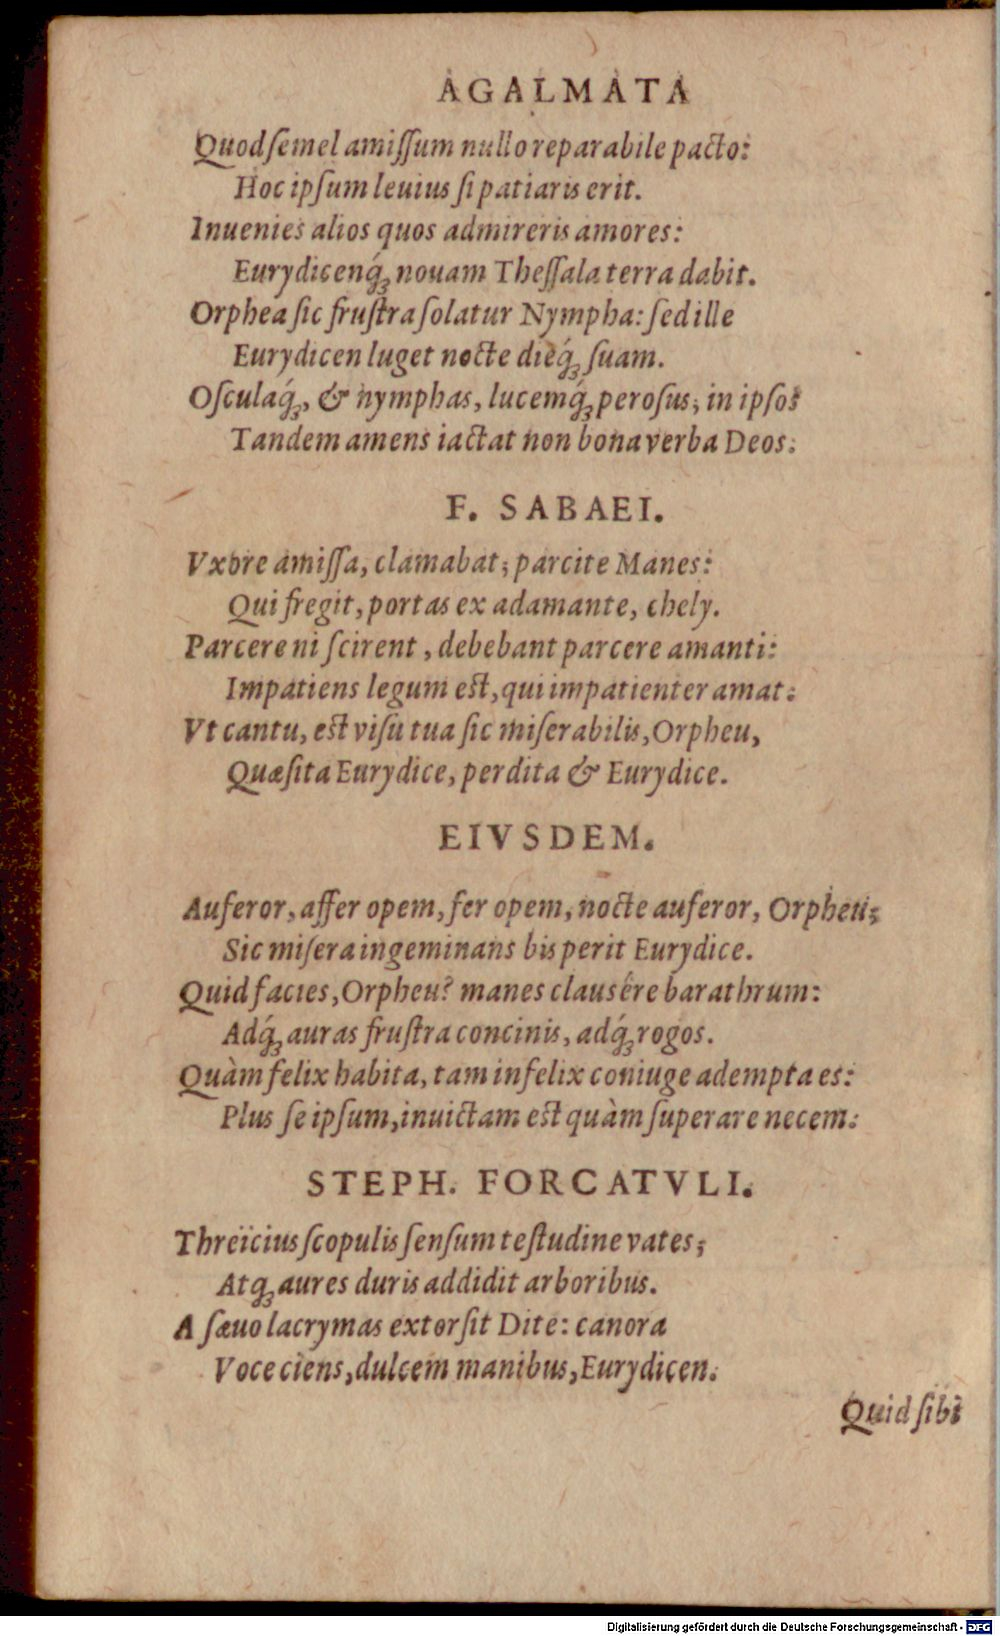 AGALMATA
Quod ſemel amiſſum nullo reparabile pacto:
Hoc ipſum leuius ſi patiaris erit.
Inuenies alios quos admireris amores:
Eurydicenq́ꝫ nouam Theſſala terra dabit.
Orphea ſic fruſtra ſolatur Nympha: ſed ille
Eurydicen luget nocte dieq́ꝫ ſuam.
Oſculaq́ꝫ, & nymphas, lucemq́ꝫ peroſus, in ipſos
Tandem amens iactat non bona verba Deos.
F. SABAEI.
Vxore amiſſa, clamabat; parcite Manes:
Qui fregit, portas ex adamante, chely.
Parcere ni ſcirent, debebant parcere amanti:
Impatiens legum est, qui impatienter amat:
Vt cantu, est viſu tua ſic miſerabilis, Orpheu,
Quæſita Eurydice, perdita & Eurydice.
EIVSDEM.
Auferor, affer opem, fer opem, nocte auferor, Orpheu;
Sic miſera ingeminans bis perit Eurydice.
Quid facies, Orpheu? manes clausêre barathrum:
Adq́ꝫ auras fruſtra concinis, adq́ꝫ rogos.
Quàm felix habita, tam infelix coniuge adempta es:
Plus ſe ipſum, inuictam est quàm ſuperare necem.
STEPH. FORCATVLI.
Threïcius ſcopulis ſenſum teſtudine vates;
Atqꝫ aures duris addidit arboribus.
A ſæuo lacrymas extorſit Dite: canora
Voce ciens, dulcem manibus, Eurydicen.
Quid ſibi
Digitalisierung gefördert durch die Deutsche Forschungsgemeinschaft - DFG